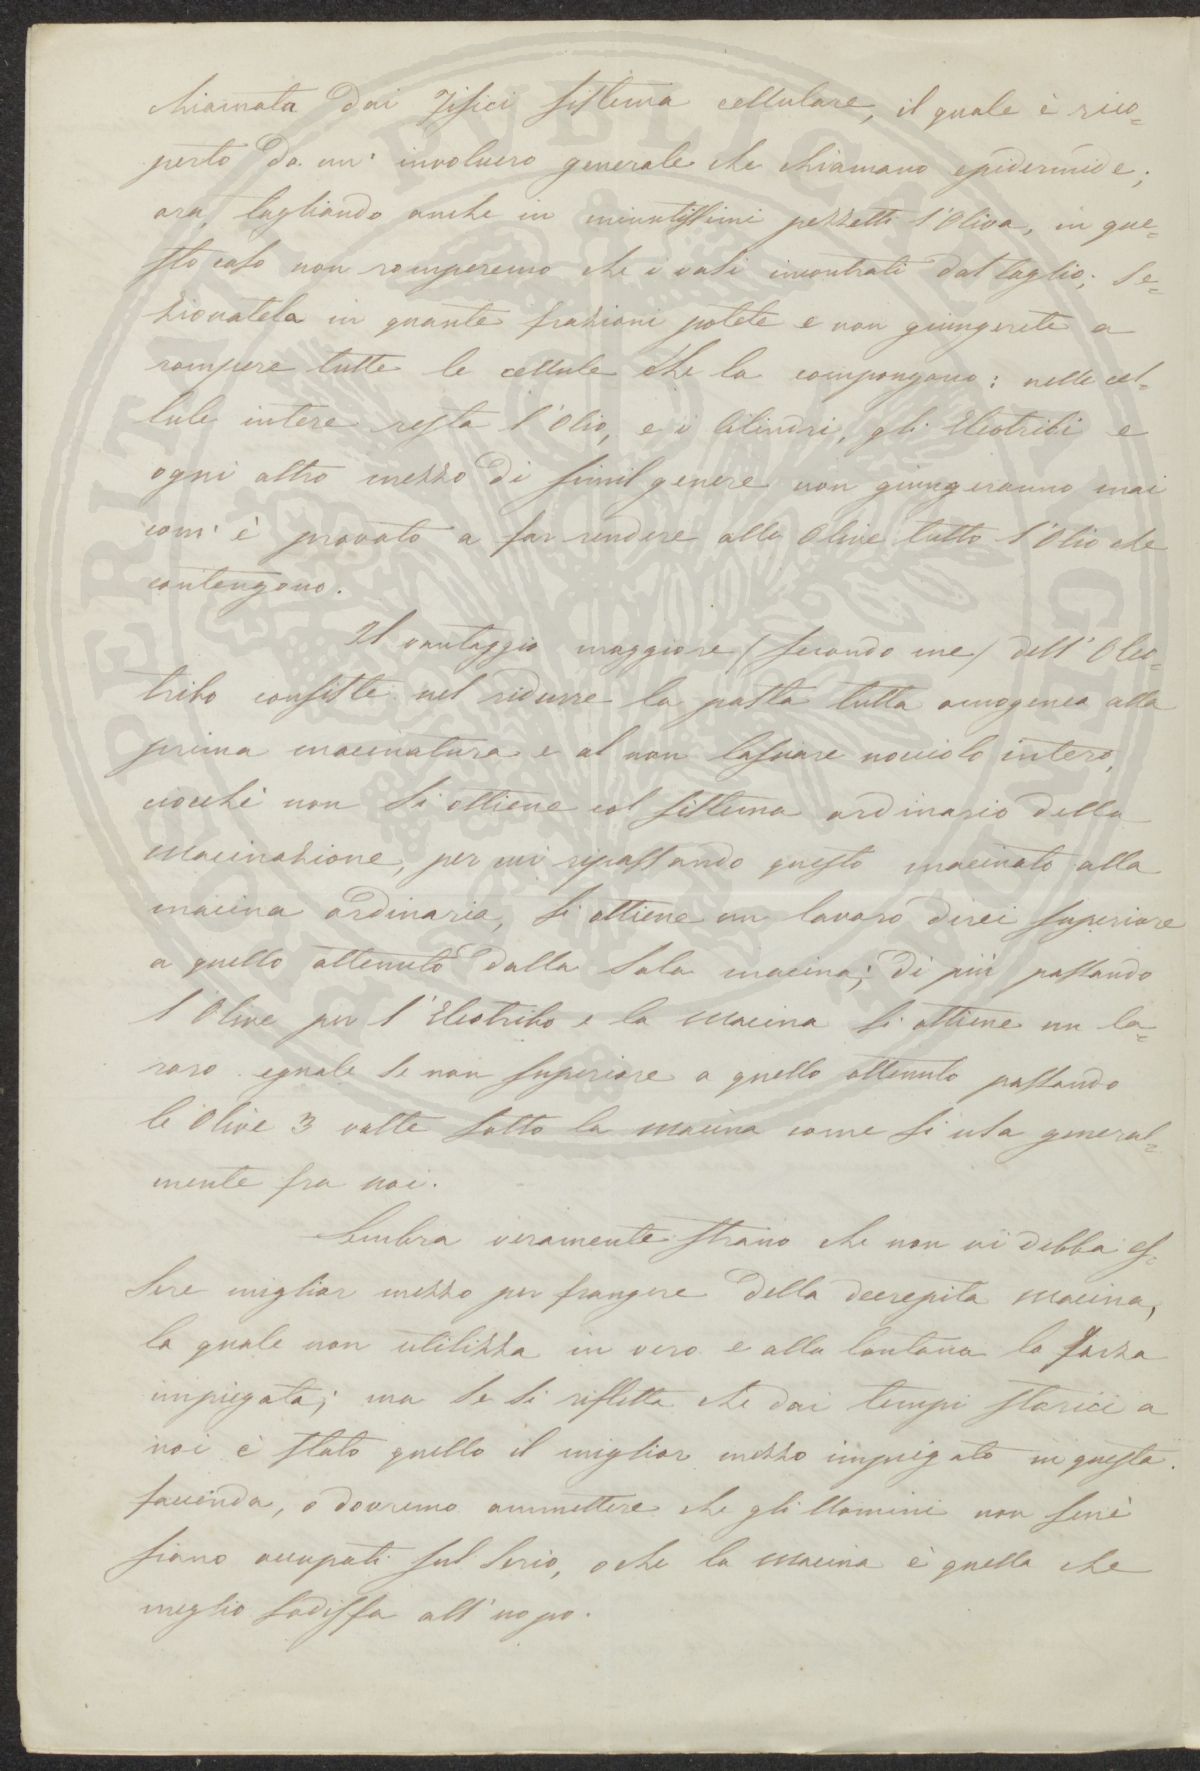 chiamata dai Fisici sistema cellulare, il quale è rico=
perto da un' involucro generale che chiamano epidermide;
ora, tagliando anche in minutissimi pezzetti l'Oliva, in que=
sto caso non romperemo che i vasi incontrati dal taglio; se=
zionatela in quante frazioni potete e non giungerete a
rompere tutte le cellule che la compongono: nelle cel=
lule intere resta l'Olio, e i Cilindri, gli Eleotribi e
ogni altro mezzo di simil genere non giungeranno mai
com' è provato a far rendere alle Olive tutto l'Olio che
contengono.
Il vantaggio maggiore (secondo me) dell' Oleo=
tribo consiste nel ridurre la pasta tutta omogenea alla
prima macinatura e al non lasciare nocciolo intero,
ciocchè non si ottiene col sistema ordinario della
Macinazione, per cui ripassando questo macinato alla
macina ordinaria, si ottiene un lavoro direi superiore
a quello ottenuto dalla sola macina; di più passando
l'Olive per l'Eleotribo e la Macina si ottiene un la=
voro eguale se non superiore a quello ottenuto passando
le Olive 3 volte sotto la Macina come si usa general=
mente fra noi.
Sembra veramente strano che non vi debba es=
sere miglior mezzo per frangere della decrepita Macina,
la quale non utilizza in vero e alla lontana la forza
impiegata; ma se si rifletta che dai tempi storici a
noi è stato quello il miglior mezzo impiegato in questa
faccenda, o dovremo ammettere che gli Uomini non sene
siano occupati sul serio, o che la Macina è quella che
meglio sodisfa all' uopo.
SOPERITVM
PVBLICA